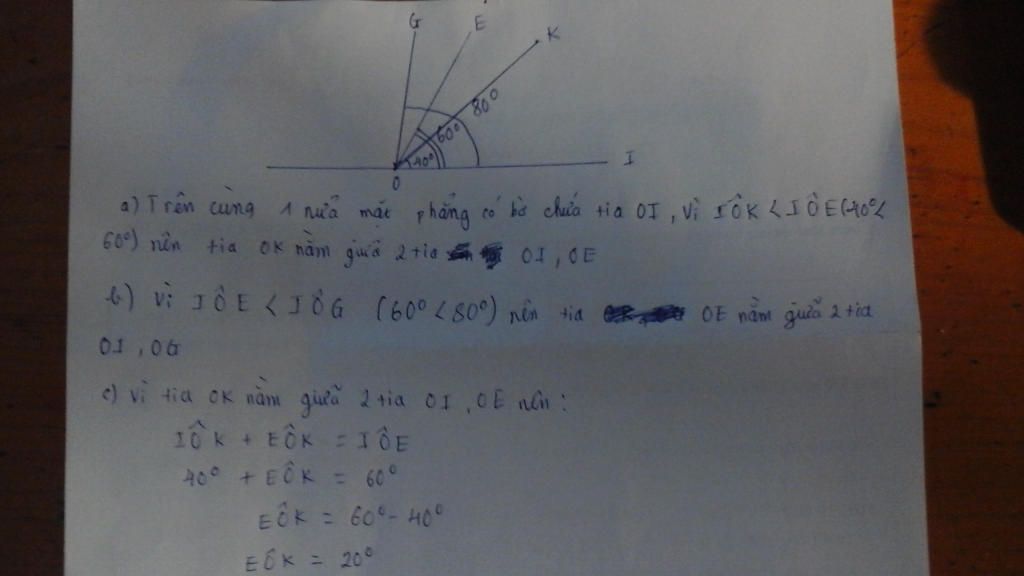 G E K
80°
60°
40°
O I
a) Trên cùng 1 nửa mặt phẳng có bờ chứa tia OI, vì IÔK < IÔE (40° <
60°) nên tia OK nằm giữa 2 tia OI, OE
b) Vì IÔE < IÔG (60° < 80°) nên tia OE nằm giữa 2 tia
OI, OG
c) Vì tia OK nằm giữa 2 tia OI, OE nên:
IÔK + EÔK = IÔE
40° + EÔK = 60°
EÔK = 60° - 40°
EÔK = 20°